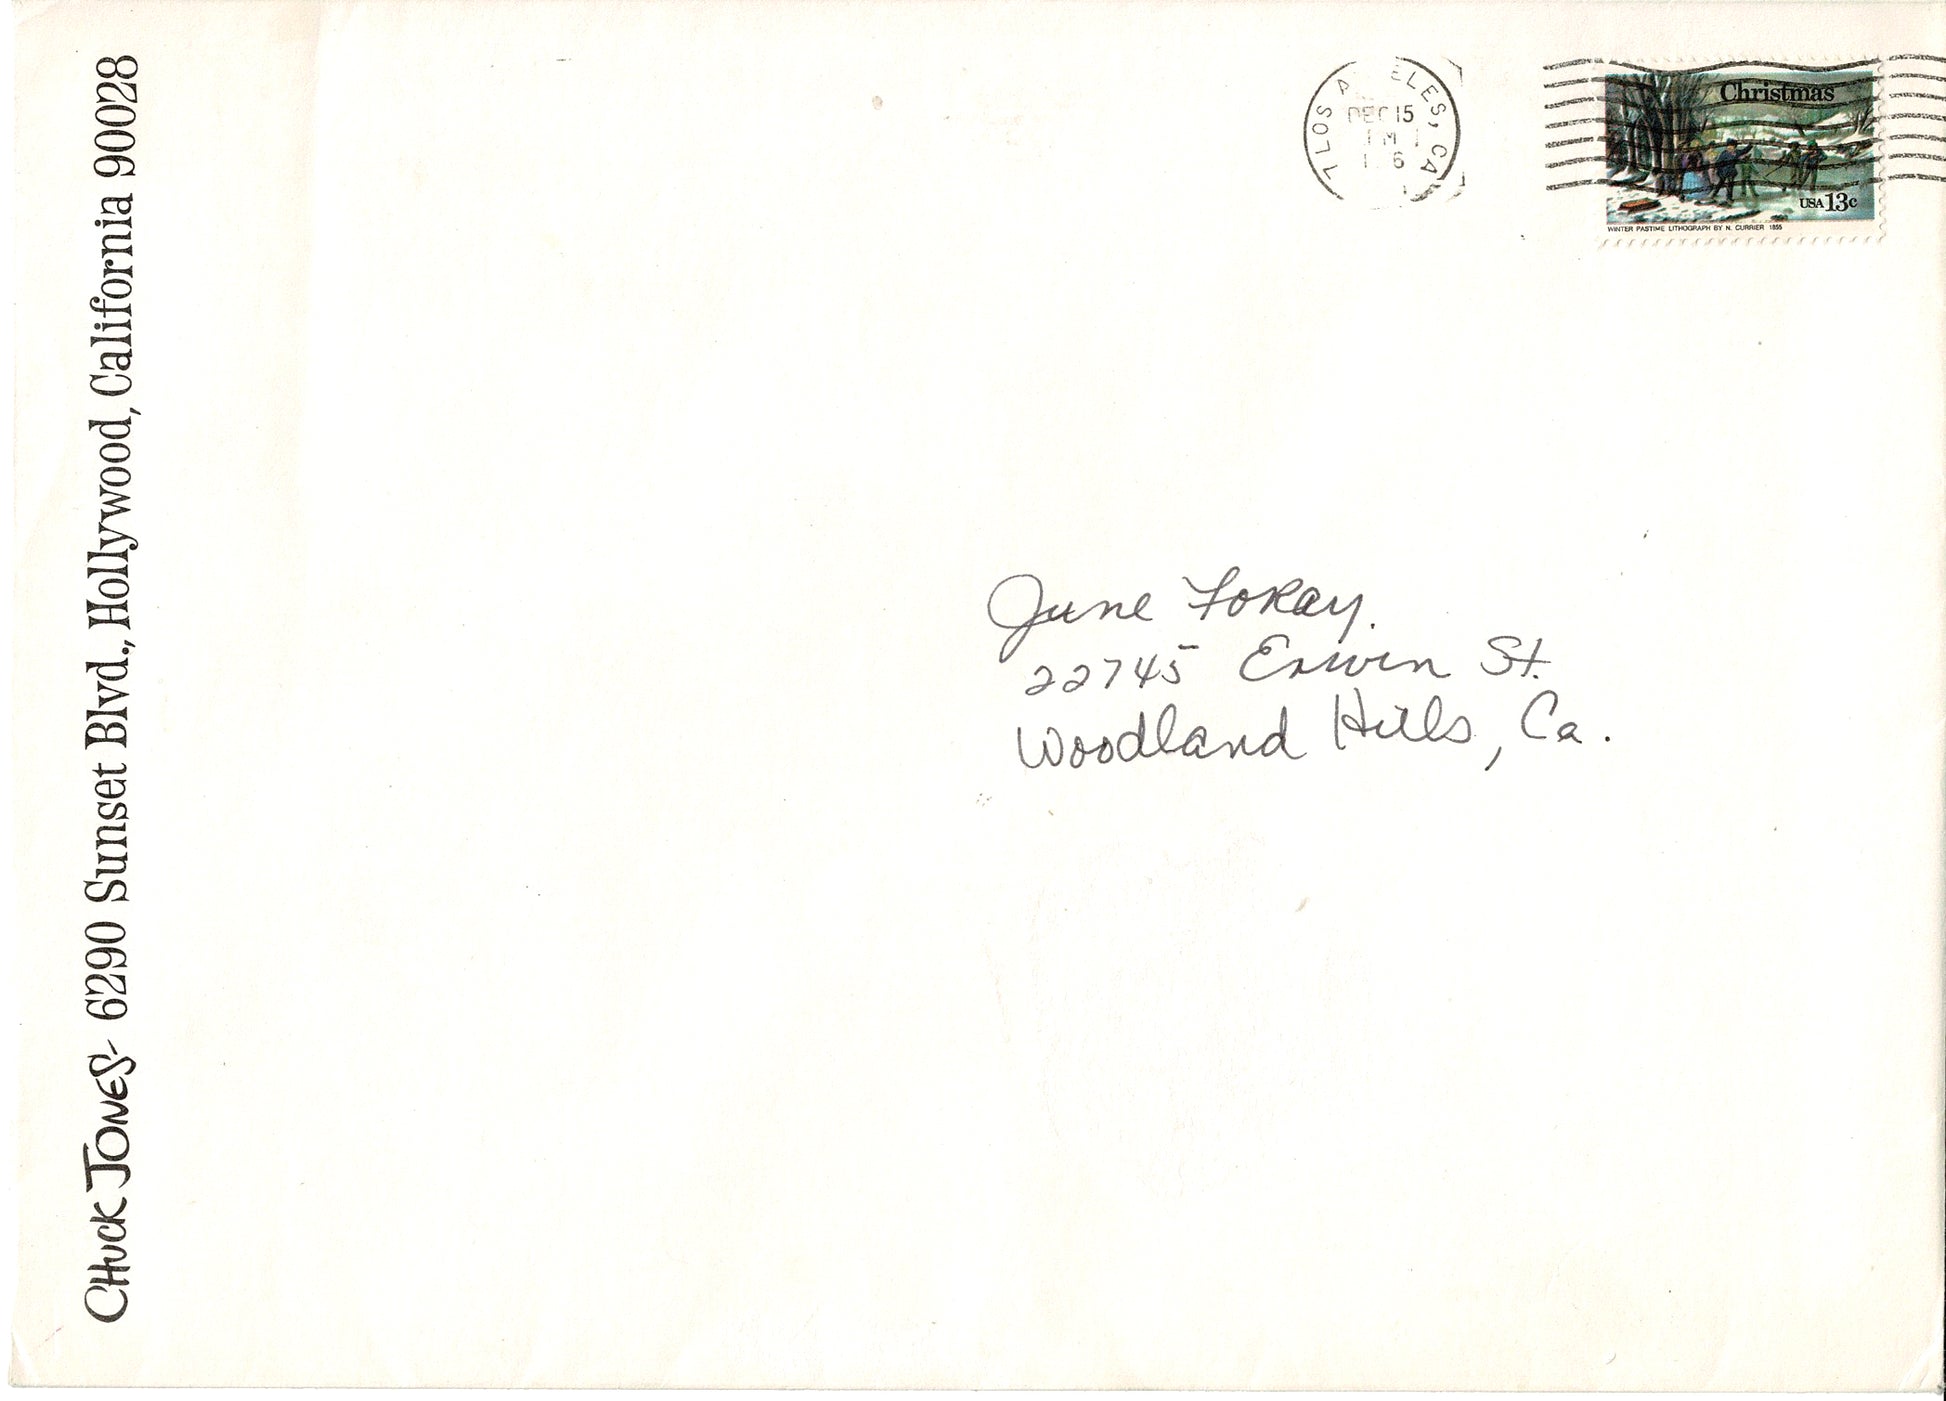 Chuck Jones- 6290 Sunset Blvd., Hollywood, California 90028
LOS A ELES, CA
DEC 15
Christmas
USA 13c
WINTER PASTIME LITHOGRAPH BY N. CURRIER 1855
June Foray.
22745 Erwin St.
Woodland Hills, Ca.